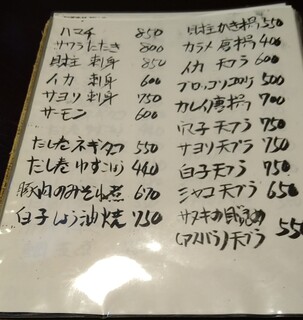 ハマチ 850
サワラたたき 800
貝柱 刺身 850
イカ 刺身 600
サヨリ 刺身 750
サーモン 600
だし巻 ネギタコ 550
だし巻 ゆずこしょう 440
豚肉のみそ煮 670
白子しょう油焼 750
貝柱かき揚 550
カラメ唐揚 400
イカ 天プラ 600
ブロッコリコロッケ 500
カレイ唐揚 700
穴子 天プラ 750
サヨリ天プラ 750
白子天プラ 750
シャコ天プラ 650
(アスパラ)天プラ 550